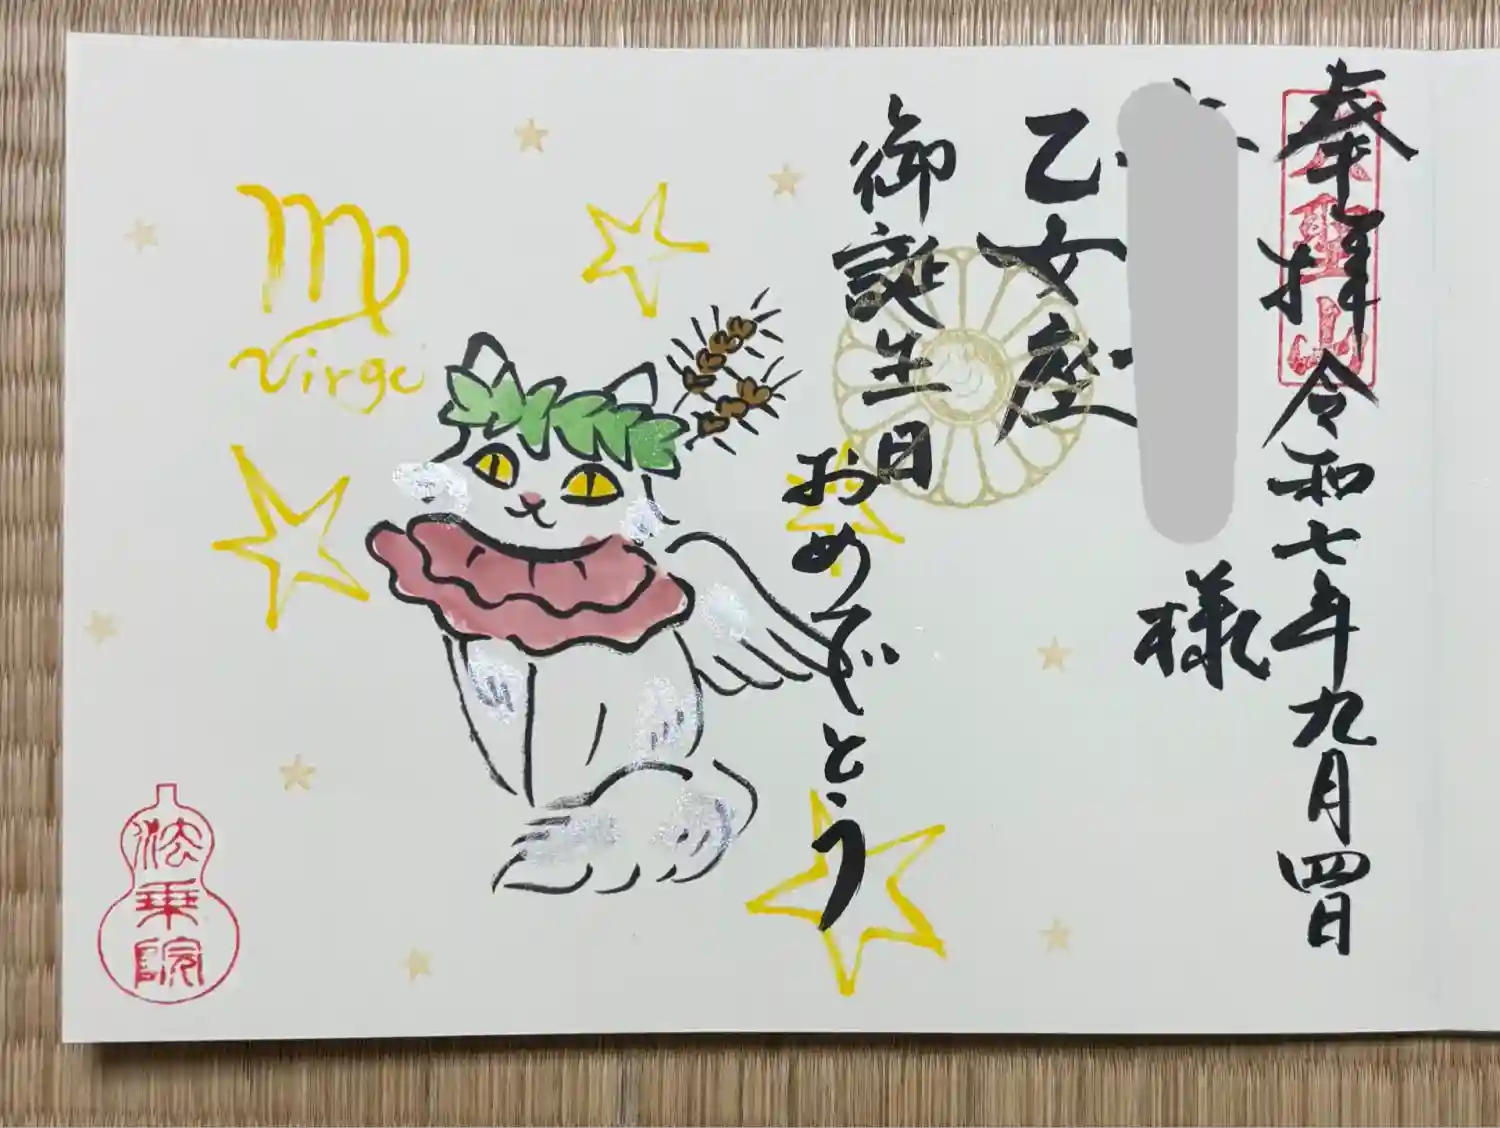 奉拝 令和七年九月四日
聖山
様
乙女座
御誕生日
おめでとう
Virgo
法乗院